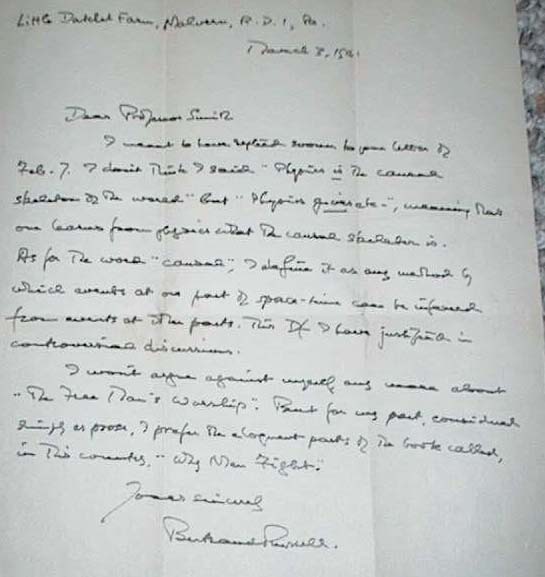 Little Datchet Farm, Malvern, R.D.1, Pa.
March 3, 1941.
Dear Professor Smith
I meant to have replied sooner to your letter of
Feb. 7. I don't think I said "Physics is the causal
skeleton of the world" but "Physics gives etc.", meaning that
one learns from physics what the causal skeleton is.
As for the word "causal", I define it as any method by
which events at one part of space-time can be inferred
from events at other parts. This Df I have justified in
controversial discussions.
I won't argue against myself any more about
"The Free Man's Worship". But for my part, considered
simply as prose, I prefer the eloquent parts of the book called,
in this country, "Why Men Fight".
Yours sincerely
Bertrand Russell.